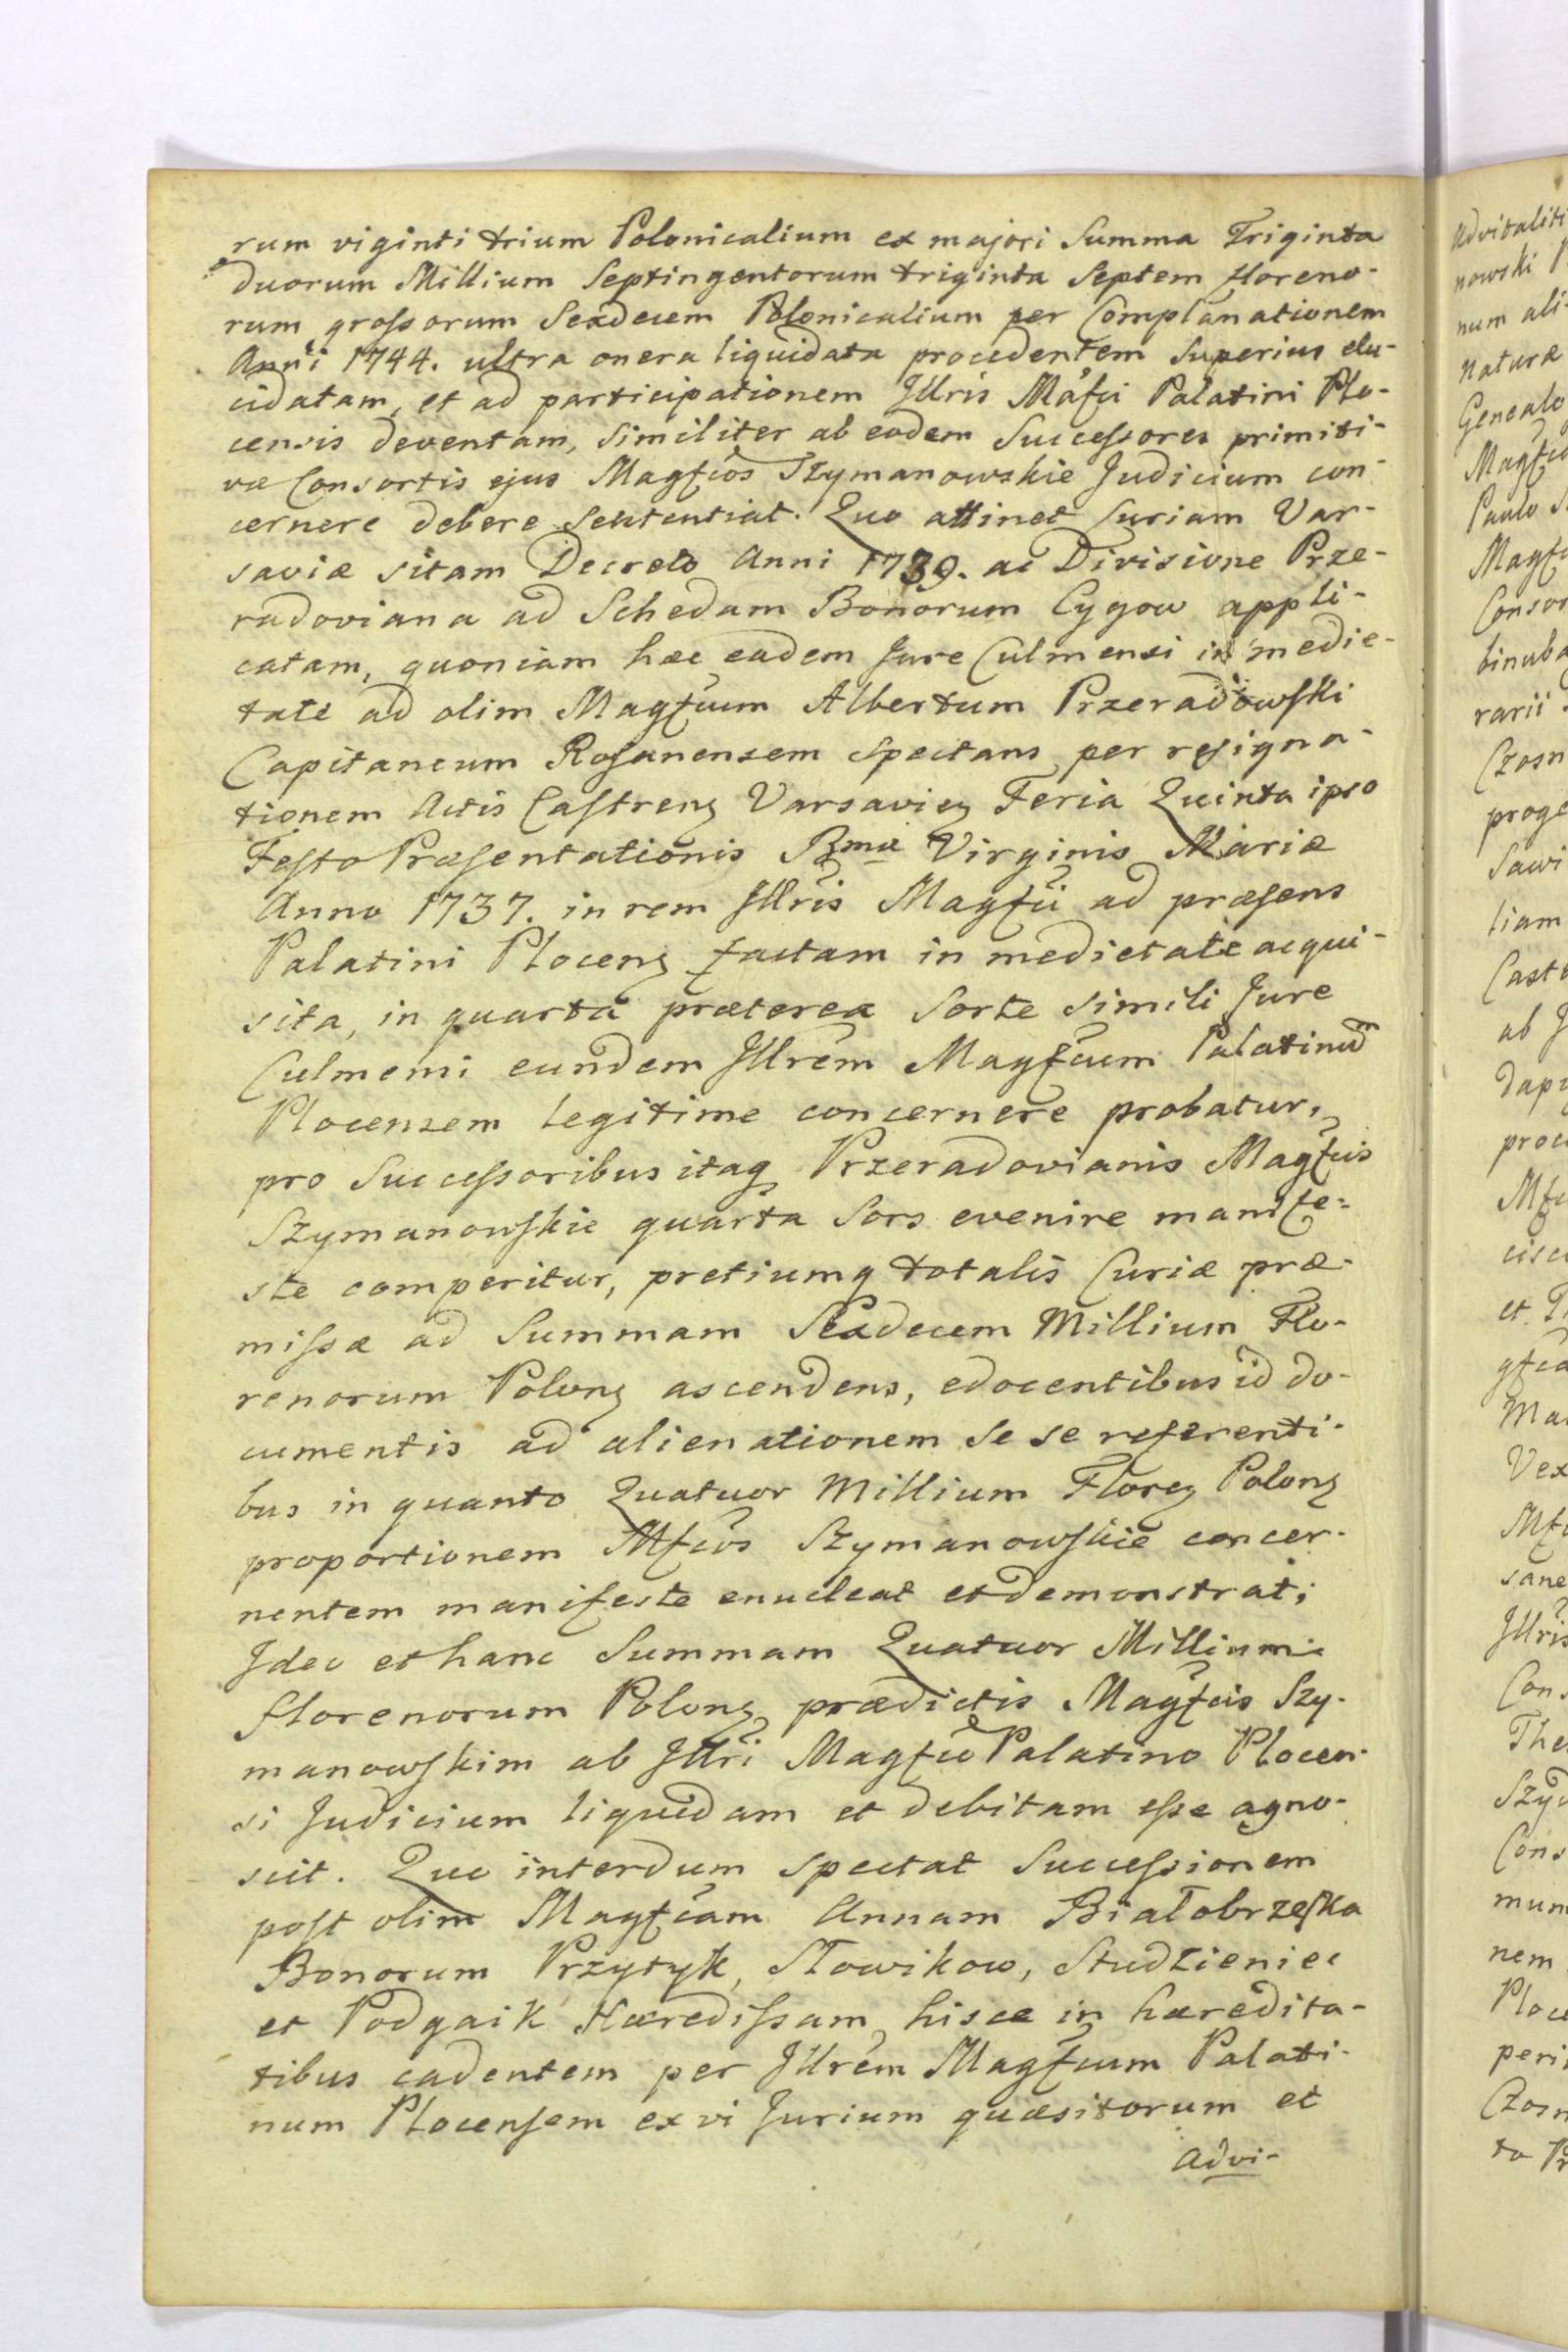 rum viginti trium Polonicalium ex majori Summa Triginta
duorum Millium Septingentorum triginta Septem floreno-
rum grossorum Sexdecem Polonicalium per Complanationem
Anni 1744. ultra onera liquidata procedentem Superius elu-
cidatam, et ad participationem Jllris Mafci Palatini Plo-
censis deventam, Similiter ab eodem Successores primiti-
væ Consortis ejus Magfcos Szymanowskie Judicium con-
cernere debere Sententiat. Quo attinet Curiam Var-
saviæ sitam Decreto Anni 1739. ac Divisione Prze-
radoviana ad Schedam Bonorum Cygow appli-
catam, quoniam hæc eadem Jure Culmensi in medie-
tate ad olim Magfcum Albertum Przeradowski
Capitaneum Rosanensem Spectans per resigna-
tionem Actis Castrenz Varsaviez Feria Quinta ipso
Festo Præsentationis Bmæ Virginis Mariæ
Anno 1737. in rem Jllris Magfci ad præsens
Palatini Plocenz factam in medietate acqui-
sita, in quarta præterea Sorte Simili Jure
Culmensi eundem Jllrem Magfcum Palatinum
Plocensem legitime concernere probatur,
pro Successoribus itaq Przeradovianis Magfcis
Szymanowskie quarta Sors evenire manife-
ste comperitur, pretiumq totalis Curiæ præ-
missæ ad Summam Sexdecem Millium Flo-
renorum Polonz ascendens, edocentibus id do-
cumentis ad alienationem Se se referenti-
bus in quanto Quatuor Millium Florez Polonz
proportionem Mfcos Szymanowskie concer-
nentem manifeste enucleat et demonstrat;
Jdeo et hanc Summam Quatuor Millium
florenorum Polonz prædictis Magfcis Szy-
manowskim ab Jllri Magfco Palatino Plocen-
si Judicium liquidam et debitam esse agno-
scit. Quo interdum spectat Successionem
post olim Magfcam Annam Białobrzeska
Bonorum Przytyk, Słowikow, Studzieniec
et Podgaik Hæredissam hisce in hæredita-
tibus cadentem per Jllrem Magfcum Palati-
num Plocensem ex vi Jurium quæsitorum et
Advi-
Advitaliti
nowski P
num ali-
Naturæ
Genealo
Magfco
Paulo S
Magfc
Consor
binuba
rarii
Czosn
proge
Sawi
liam
Cast
ab J
dapi
proc
Mfc
cisci
et
gfca
Ma
Vex
Mfc
sane
Jllris
Cons
The
Szyd
Cons
mum
nem
Ploce
peri
Czosn
to